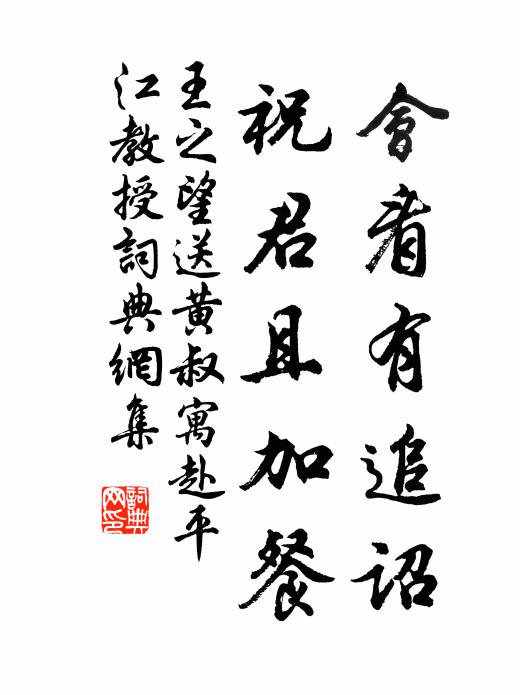 會看有追詔
祝君且加餐
王之望送黃叔寓赴平
江教授詞典網集
詞典
网印